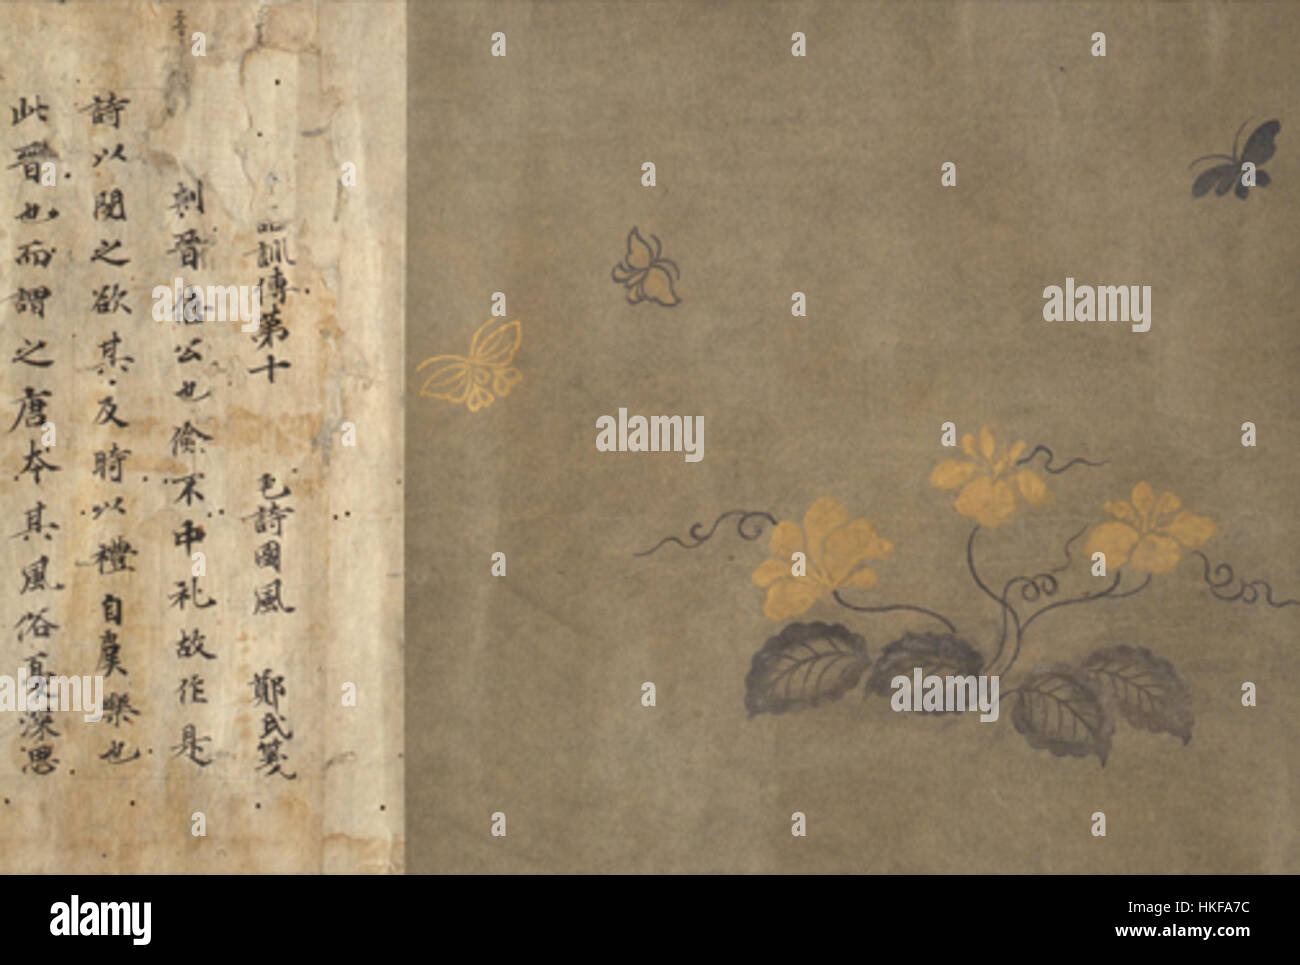 訓傳第十 毛詩國風 鄭氏箋
刺晉僖公也儉不中礼故作是
詩以閔之欲其及時以禮自虞樂也
此晉也而謂之唐本其風俗憂深思
alamy
alamy
alamy
alamy stock photo
HKFA7C
www.alamy.com